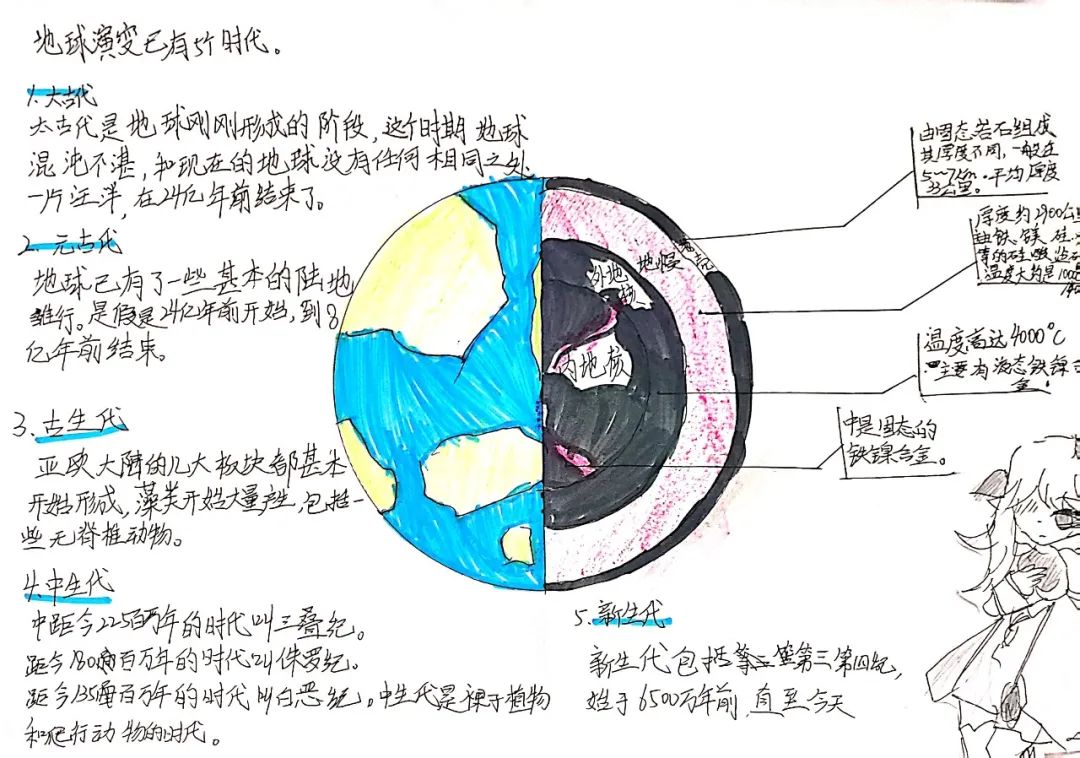 地球演变已有5个时代。
1.太古代
太古代是地球刚刚形成的阶段,这个时期地球
混沌不湛,和现在的地球没有任何相同之处,
一片汪洋,在24亿年前结束了。
2.元古代
地球已有了一些基本的陆地
雏行。是假是24亿年前开始,到8
亿年前结束。
3.古生代
亚欧大陆的几大板块都基本
开始形成,藻类开始大量产生,包括一
些无脊椎动物。
4.中生代
中距今225百万年的时代叫三叠纪。
距今180百万年的时代叫侏罗纪。
距今135百万年的时代叫白恶纪。中生代是裸子植物
和爬行动物的时代。
5.新生代
新生代包括第三第四纪,
始于6500万年前,直至今天
地幔
外地核
内地核
由固态岩石组成
其厚度不同,一般在
5~7km.平均厚度
33公里。
厚度约2900公里
由铁、镁、硅、
的硅酸盐石
温度大约是1000℃
温度高达4000°C
主要有液态铁镍合
金.
中是固态的
铁镍合金。